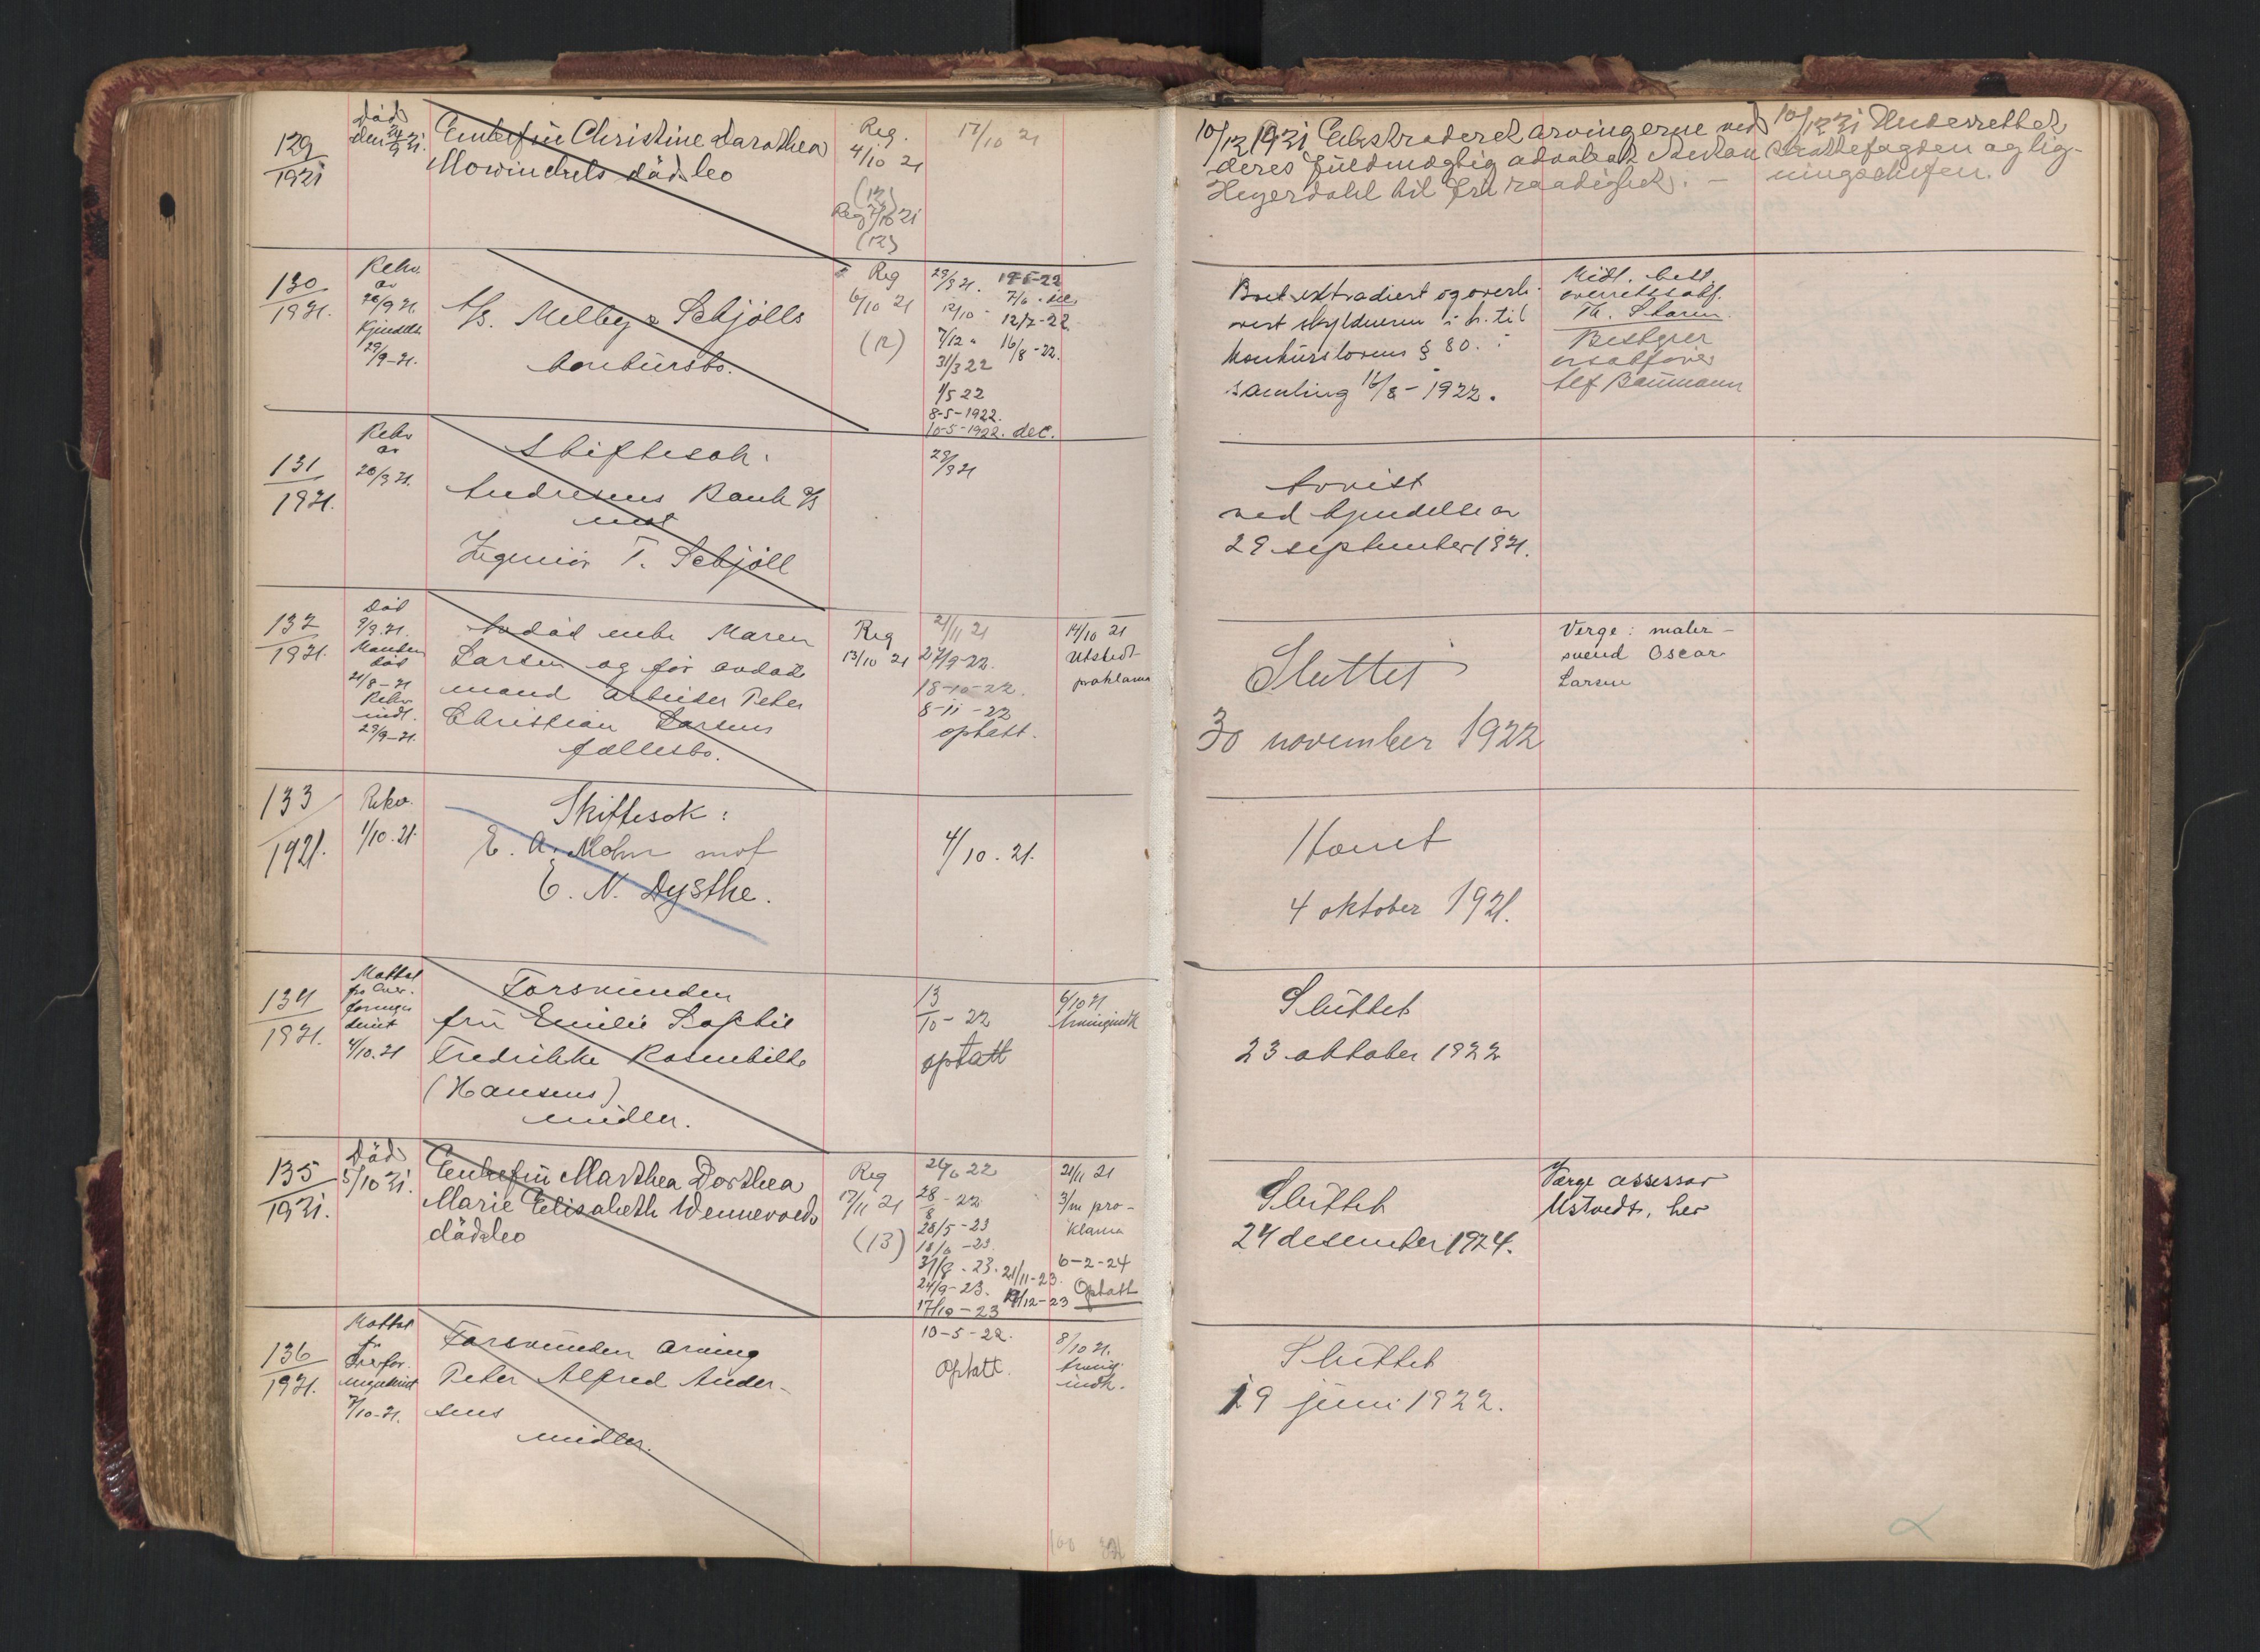 129
1921
Död
den 24/9 21.
Enkefru Christine Darathea
Mowinckels dödsbo
Reg.
4/10 21
(12)
Reg 7/10 21
(12)
17/10 21
10/12 1921 Ekstraderet arvingerne ved
deres fuldmægtig advokat
Heyerdahl til fri raadighed. —
10/12 21 Underrettet
skattefogden og lig-
ningschefen.
130
1921.
Rekv.
av
28/9 21
Kjendelse
29/9-21.
A/S. Melbye & Schjölls
konkursbo.
Reg
6/10 21
(12)
29/9 21.
12/10 -
7/12 "
31/3 22
1/5 22
8-5-1922.
10-5-1922. dec.
19-5-22
7/6 -
12/7-22
16/8-22.
Boet extradiert og overle-
vert skylderen i h. til
konkurslovens § 80. i
samling 16/8-1922.
Midl. best.
overretssakf.
Th.
Bestyrer
o.r.sakfører
Alf Baumann
131
1921.
Rekv
av
20/9 21.
Skiftesak:
Andresens Bank A/S
mot
Ingeniör T. Schjöll
29/9 21
Avvist
ved kjendelse av
29 september 1921.
132
1921.
Död
9/9.21.
Manden
död
21/8-21
Rekv
indl.
29/9-21.
Avdød enke Maren
Larsen og før avdøde
mand arbeider Peter
Christian Larsens
fællesbo.
Reg
13/10 21
21/11 21
27/9-22.
18-10-22.
8-11-22
optatt.
14/10 21
Utstedt
proklama
Sluttet
30 november 1922
Verge: maler-
svend Oscar
Larsen
133
1921.
Rekv.
1/10.21.
Skiftesak:
E. A. Mohn mot
E. N. Dysthe.
4/10.21.
Hævet
4 oktober 1921.
134
1921.
Mottat
fra Over-
formyn
deriet
4/10.21
Forsvunden
fru Emilie Sophie
Fredrikke Rosenkilde
(Hansens)
midler.
13
10-22
optatt
6/10 21
Sluttet
23 oktober 1922
135
1921.
Död
5/10 21.
Enkefru Marthea Dorthea
Marie Elisabeth Wennevolds
dödsbo
Reg
17/11 21
(13)
26/6 22
28/8-22
28/5-23
18/6-23.
31/8-23.
24/9-23.
17/10-23
21/11-23.
19/12-23
21/11 21
3/m pro-
klama
6-2-24
Optatt
Sluttet
24 desember 1924.
Værge assessor
Ustvedt, her
136
1921.
Mottat
fra
Overfor-
mynderiet
7/10-21.
Forsvunden arving
Peter Alfred Ander-
sens
midler.
10-5-22.
Optatt.
8/10 21.
indk.
Sluttet
19 juni 1922.